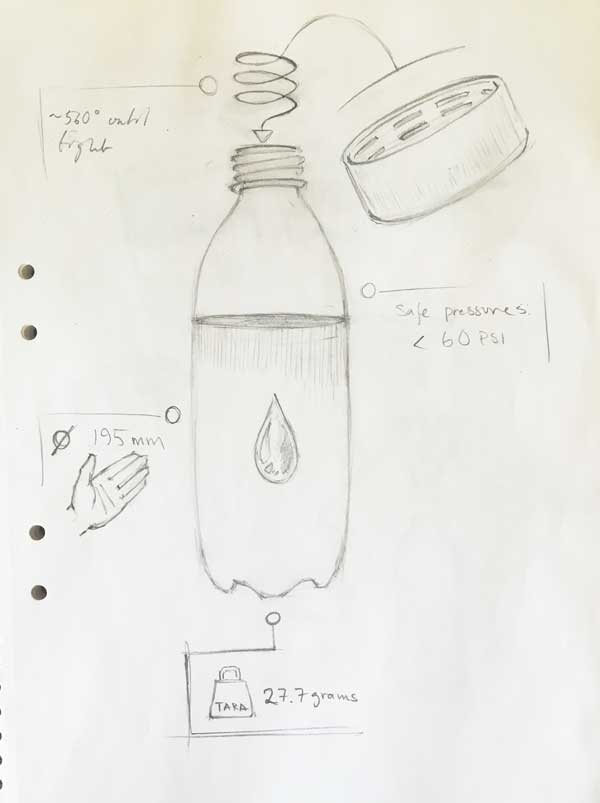 ~560° until
tight
Safe pressures:
< 60 PSI
Ø 195 mm
TARA
27.7 grams